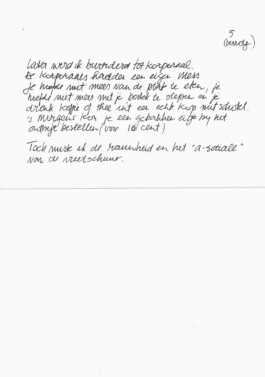 5
(vervolg)
Later werd ik bevorderd tot korporaal.
De korporaals hadden een eigen mess
Je hoefde niet meer van de plank te eten, je
hoefde niet meer met je bestek te slepen en je
dronk koffie of thee uit een echt kopje met schotel.
's Morgens kon je een gebakken eitje bij het
ontbijt bestellen (voor 10 cent)
Toch miste ik de rauwheid en het "a-sociale"
van de vreetschuur.